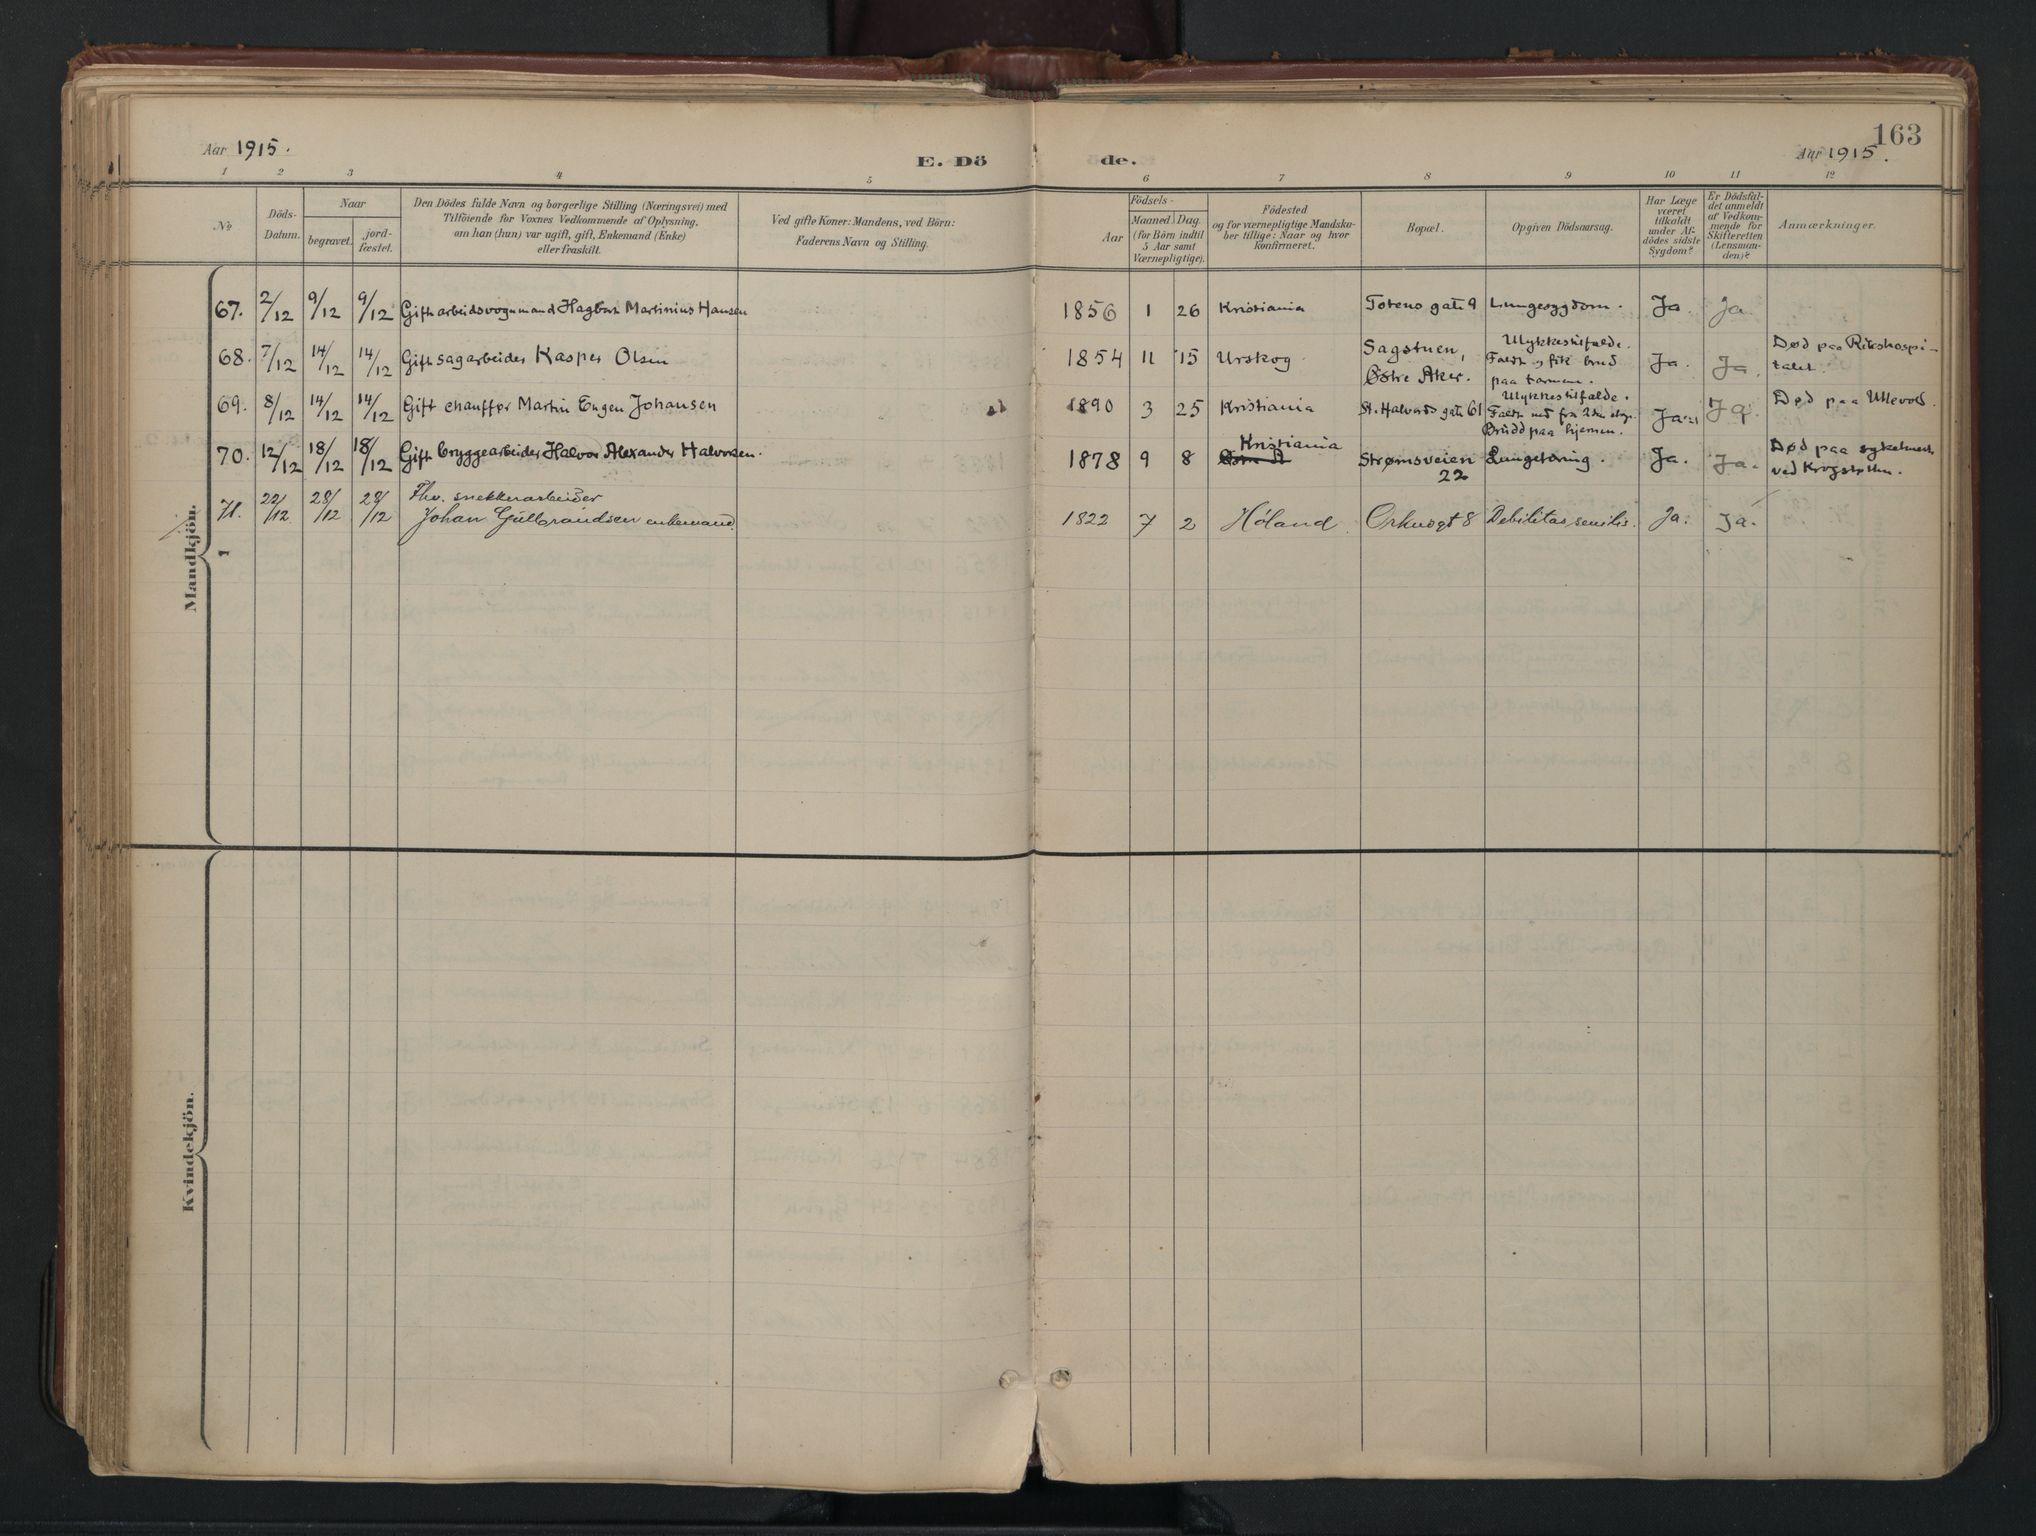 Aar 1915.
E. Dö
de.
163
Aar 1915.
1 2 3 4 5 6 7 8 9 10 11 12
№
Döds-
Datum.
Naar
begravet.
jord-
fæstet.
Den Dödes fulde Navn og borgerlige Stilling (Næringsvei) med
Tilföiende for Voxnes Vedkommende af Oplysning,
om han (hun) var ugift, gift, Enkemand (Enke)
eller fraskilt.
Ved gifte Koner: Mandens, ved Börn:
Faderens Navn og Stilling.
Födsels-
Aar
Maaned
Dag
(for Börn indtil
5 Aar samt
Værnepligtige).
Födested
og for værnepligtige Mandska-
ber tillige: Naar og hvor
konfirmeret.
Bopæl.
Opgiven Dödsaarsag.
Har Læge
været
tilkaldt
under Af-
dödes sidste
Sygdom?
Er Dödsfal-
det anmeldt
af Vedkom-
mende for
Skifteretten
(Lensman-
den)?
Anmærkninger.
Mandkjön.
67. 2/12 9/12 9/12 Gift arbeidsvognmand Hagbart Martinius Hansen 1856 1 26 Kristiania Totens gate 9 Lungesygdom. Ja. Ja
68. 7/12 14/12 14/12 Gift sagarbeider Kasper Olsen 1854 11 15 Urskog. Sagstuen, Østre Aker. Ulykkestilfælde. Faldt og fik brud paa tarmen. Ja. Ja. Død paa Rikshospi-
talet.
69. 8/12 14/12 14/12 Gift chauffør Martin Eugen Johansen 1890 3 25 Kristiania St. Halvards gate 61 Ulykkestilfælde. Faldt ned fra 2den etg. Brudd paa hjernen. Ja Ja Død paa Ullevold.
70. 12/12 18/12 18/12 Gift bryggearbeider Halvor Alexander Halvorsen. 1878 9 8 Kristiania Strømsveien 22 Lungetæring. Ja. Ja. Død paa sykehuset
ved Krogstøtten.
71. 22/12 28/12 28/12 Fhv. snekkerarbeider
Johan Gulbrandsen enkemand. 1822 7 2 Höland. Orknøgt 8 Debilitas senilis. Ja. Ja.
Kvindekjön.